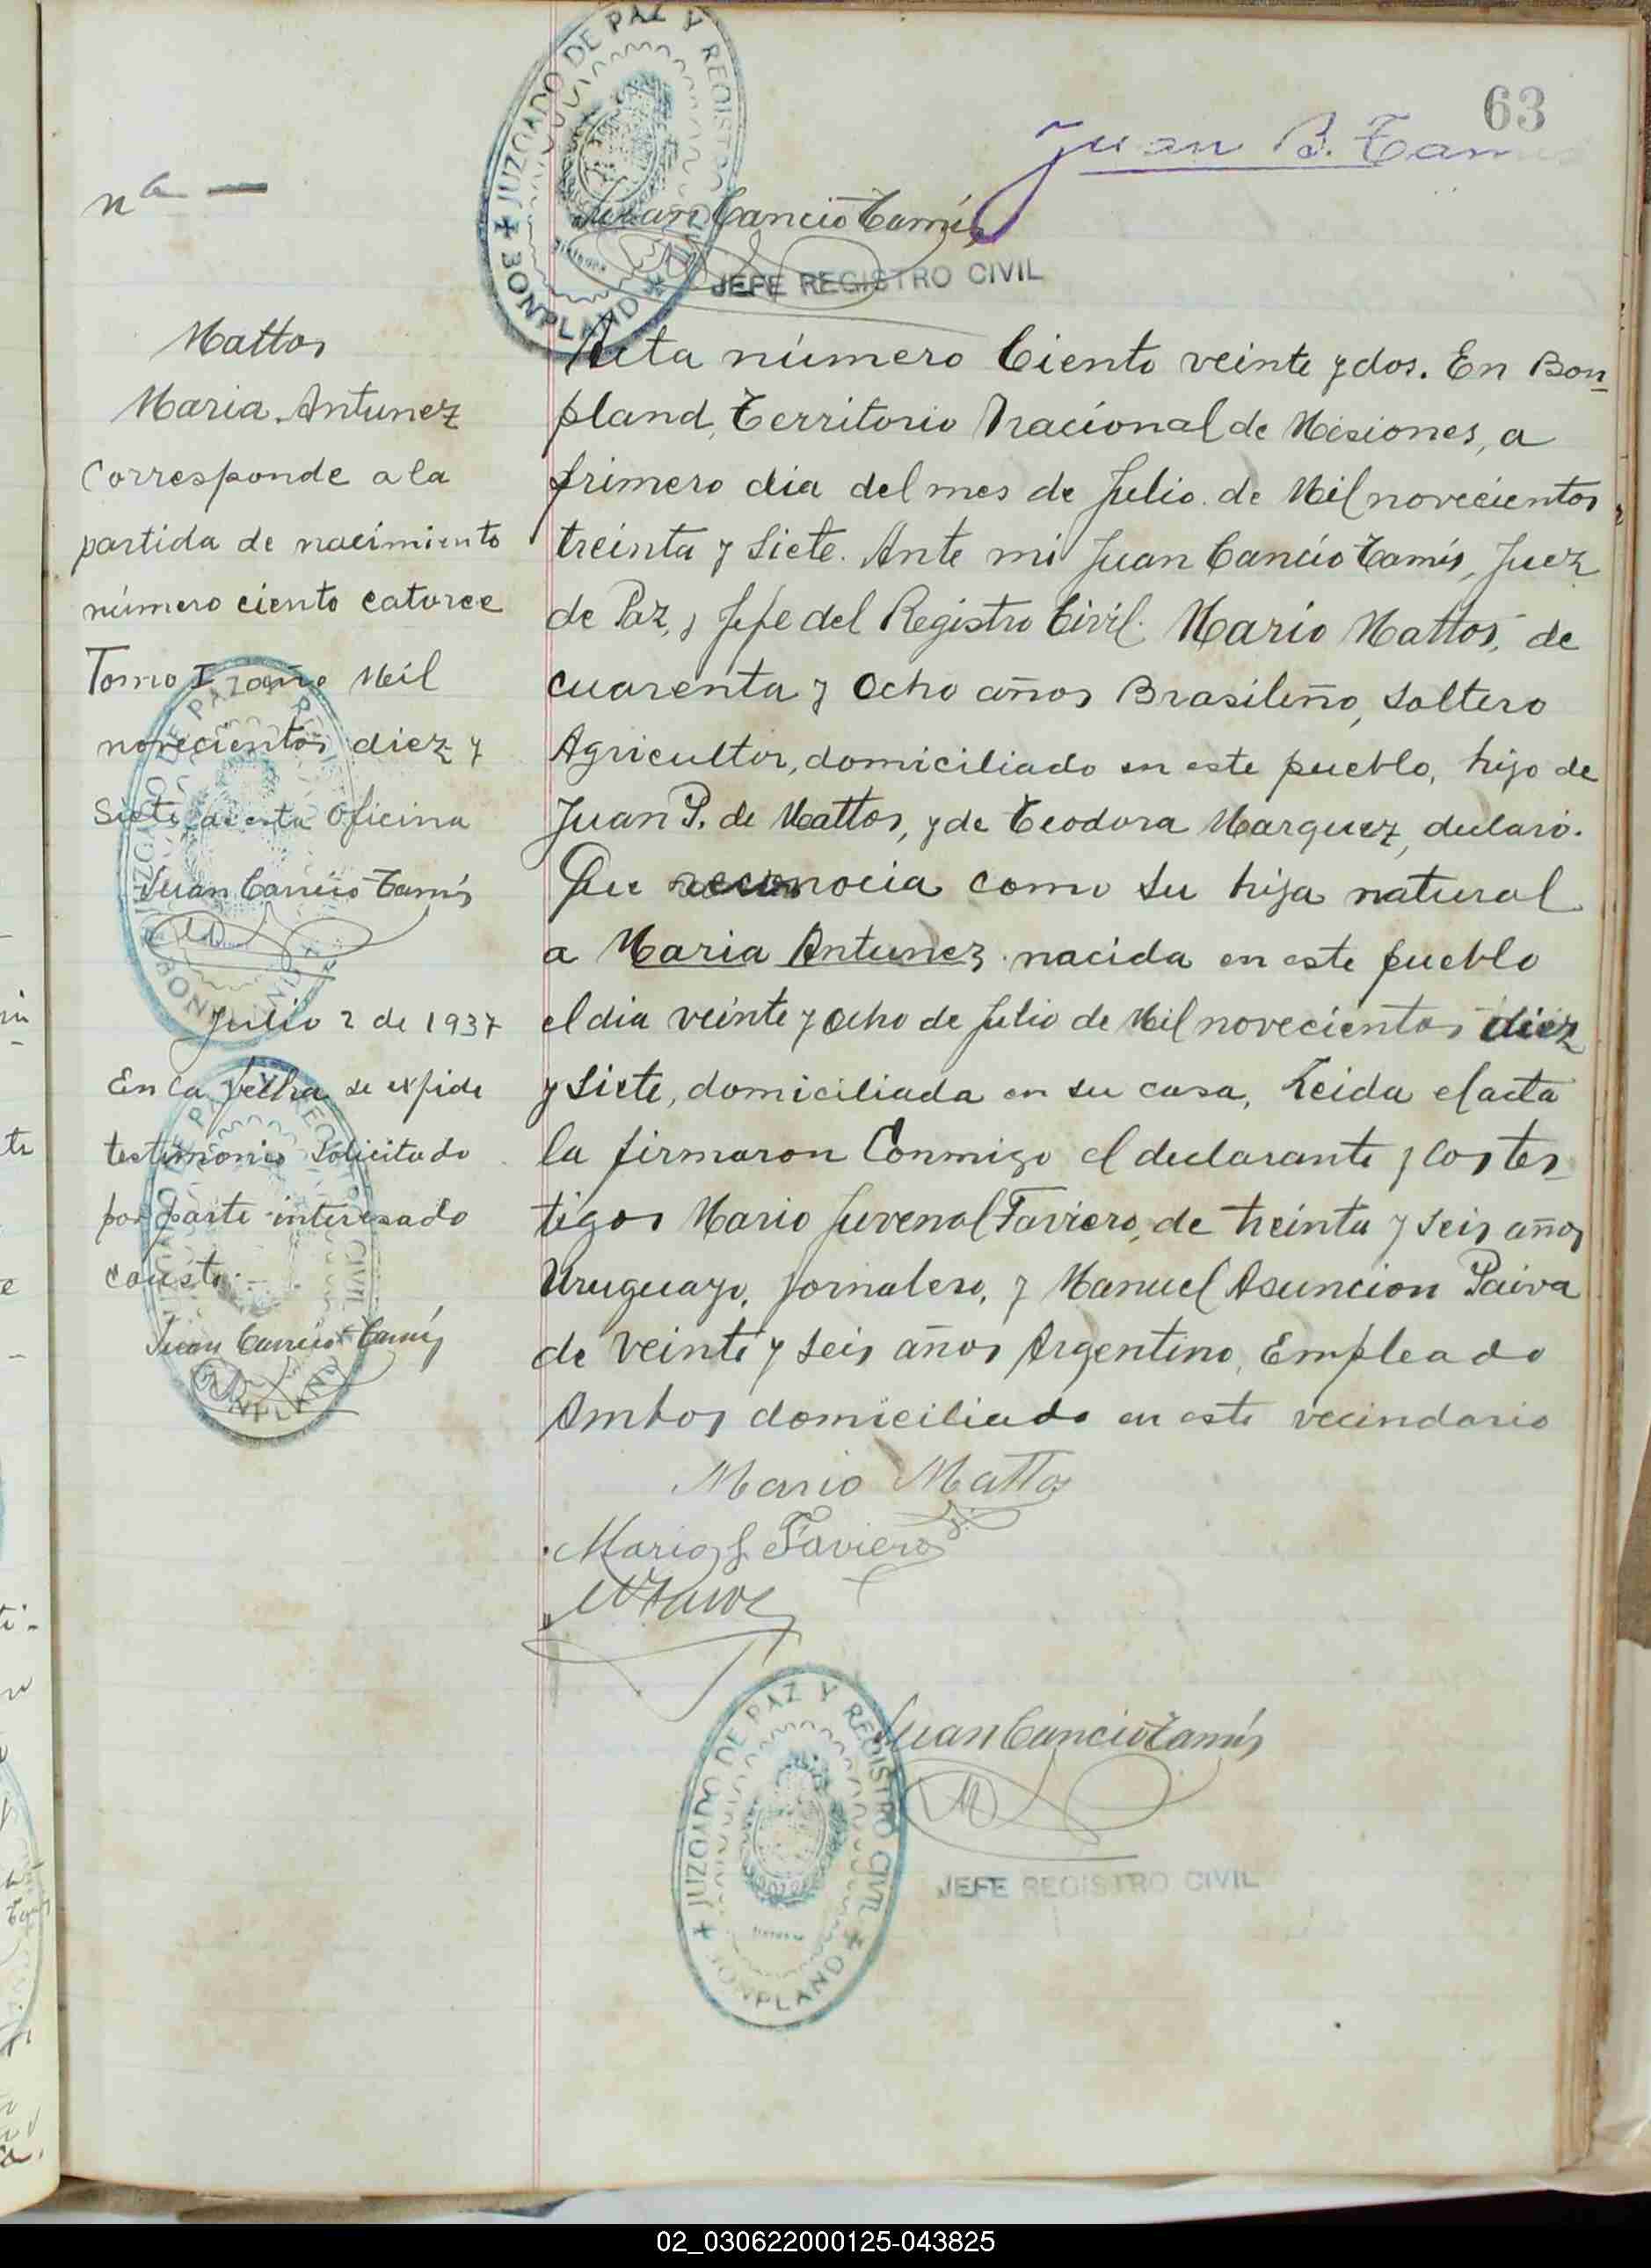 63
Juan B. Tam
JUZGADO DE PAZ Y REGISTRO CIVIL
BONPLAND
Juan Cancio Tamis
JEFE REGISTRO CIVIL
Na —
Mattos
Maria Antunez
Corresponde a la
partida de nacimiento
número ciento catorce
Tomo I año Mil
novecientos diez y
Siete de esta Oficina
Juan Cancio Tamis
Julio 2 de 1937
En la fecha se expide
testimonio Solicitado
por parte interesado
conste.
Juan Cancio Tamis
JUZGADO DE PAZ Y REGISTRO CIVIL
BONPLAND
JUZGADO DE PAZ Y REGISTRO CIVIL
BONPLAND
Acta número Ciento veinte y dos. En Bon-
pland, Territorio Nacional de Misiones, a
primero dia del mes de Julio de Mil novecientos
treinta y Siete. Ante mi Juan Cancio Tamis, Juez
de Paz, y Jefe del Registro Civil. Mario Mattos, de
cuarenta y Ocho años Brasileño, Soltero
Agricultor, domiciliado en este pueblo, hijo de
Juan P. de Mattos, y de Teodora Marquez, declaró.
Que reconocia como su hija natural
a Maria Antunez nacida en este pueblo
el dia veinte y Ocho de Julio de Mil novecientos diez
y Siete, domiciliada en su casa, Leida el acta
la firmaron Conmigo el declarante y los tes-
tigos Mario Juvenal Faviero, de treinta y seis años
Uruguayo, jornalero, y Manuel Asuncion Paiva
de veinte y seis años Argentino, Empleado
Ambos domiciliado en este vecindario
Mario Mattos
Mario J. Faviero
Juan Cancio Tamis
JEFE REGISTRO CIVIL
JUZGADO DE PAZ Y REGISTRO CIVIL
BONPLAND
02_030622000125-043825